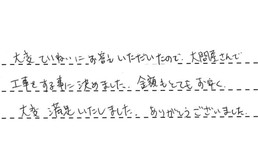 大変ていねいにお答えいただいたので、大問屋さんで
工事をする事に決めました。金額もとてもお安く、
大変満足いたしました。ありがとうございました。